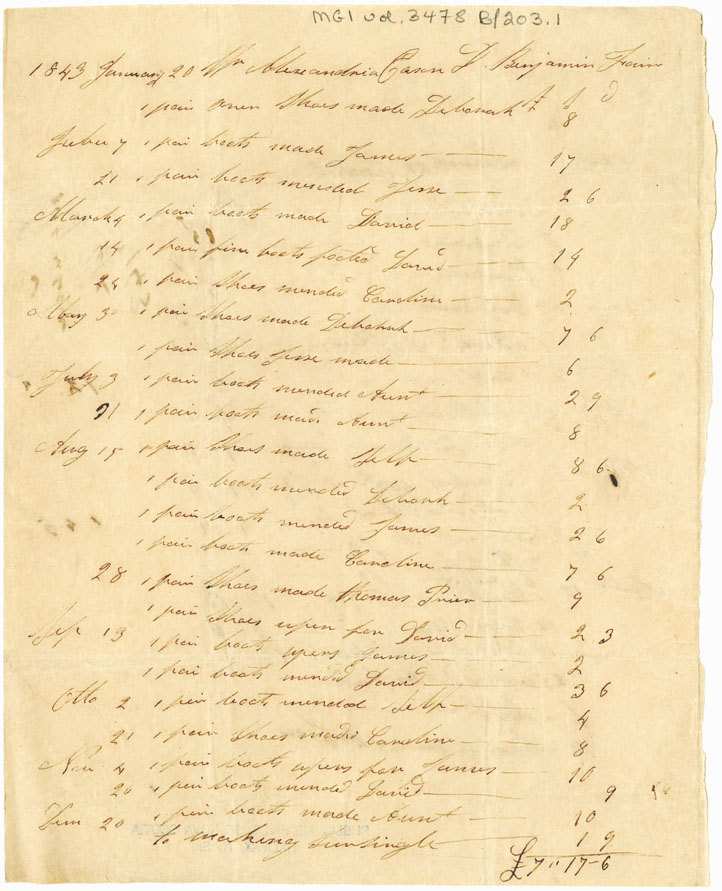 MG1 vol. 3478 B/203.1
1843 January 20 Mr Alexandria Cason Benjamin
£ s d
1 pair over Shoes made Deborah 8
7 1 pair boots made James 17
21 1 pair boots mended Jesse 2 6
March 4 1 pair boots made David 18
14 1 pair fine boots footed David 14
24 1 pair Shoes mended Caroline 2
May 30 1 pair Shoes made Deborah 7 6
1 pair Shoes Jesse made 6
July 3 1 pair boots mended Aunt 2 9
21 1 pair boots made Aunt 8
Aug 15 1 pair Shoes made Self 8 6
1 pair boots mended Deborah 2
1 pair boots mended James 2 6
1 pair boots made Caroline 7 6
28 1 pair Shoes made thomas Prier 9
1 pair Shoes upen for David 2 3
Sep 13 1 pair boots upers James 2
1 pair boots mended David 3 6
Octo 2 1 pair boots mended Self 4
21 1 pair Shoes made Caroline 8
Nov 4 1 pair boots upers for James 10
20 1 pair boots mended David 9
20 1 pair boots made Aunt 10
to making 1 9
£7"17-6